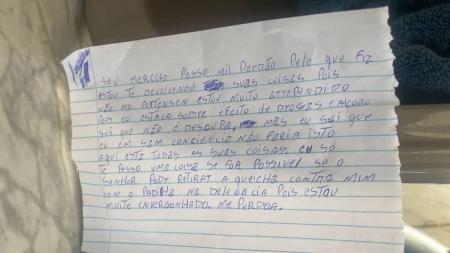 SEU MARCOS PESSO MIL PERDÃO PELO QUE FIZ
ESTOU TE DEVOLVENDO SUAS COISAS POIS
NÃO ME PERTENSEN ESTOU MUITO ARREPENDIDO
POIS EU ESTAVA SOBRE EFEITO DE DROGAS E ALCOOU
SEI QUE NÃO É DESCUPA, MAS EU SEI QUE
EU EM SAM CONCIENCIA NÃO FARIA ISTO
AQUI ESTA TODAS AS SUAS COISAS, EU SO
TE PESSO UMA COISA SE FOR POSSIVEL SE O
SENHOR PODE RETIRAR A QUEICHA CONTRA MIM
CON O PADILHA NA DELEGACIA POIS ESTOU
MUITO ENVERGONHADO, ME PERDOA.